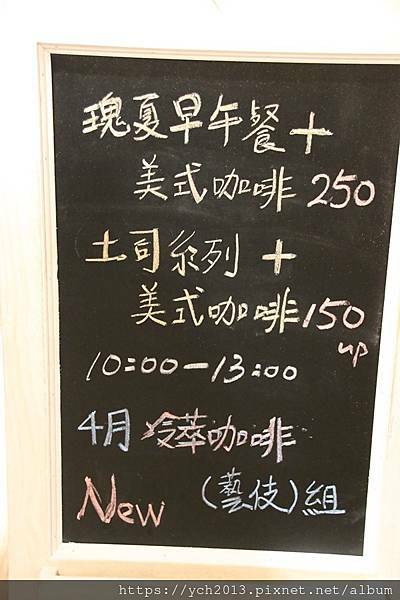 瑰夏早午餐+
美式咖啡 250
土司系列 +
美式咖啡150
up
10:00-13:00
4月 冷萃咖啡
New (藝伎)組
https://ych2013.pixnet.net/album